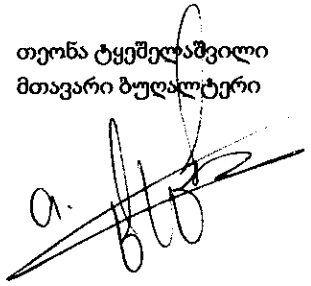 თეონა ტყეშელაშვილი
მთავარი ბუღალტერი